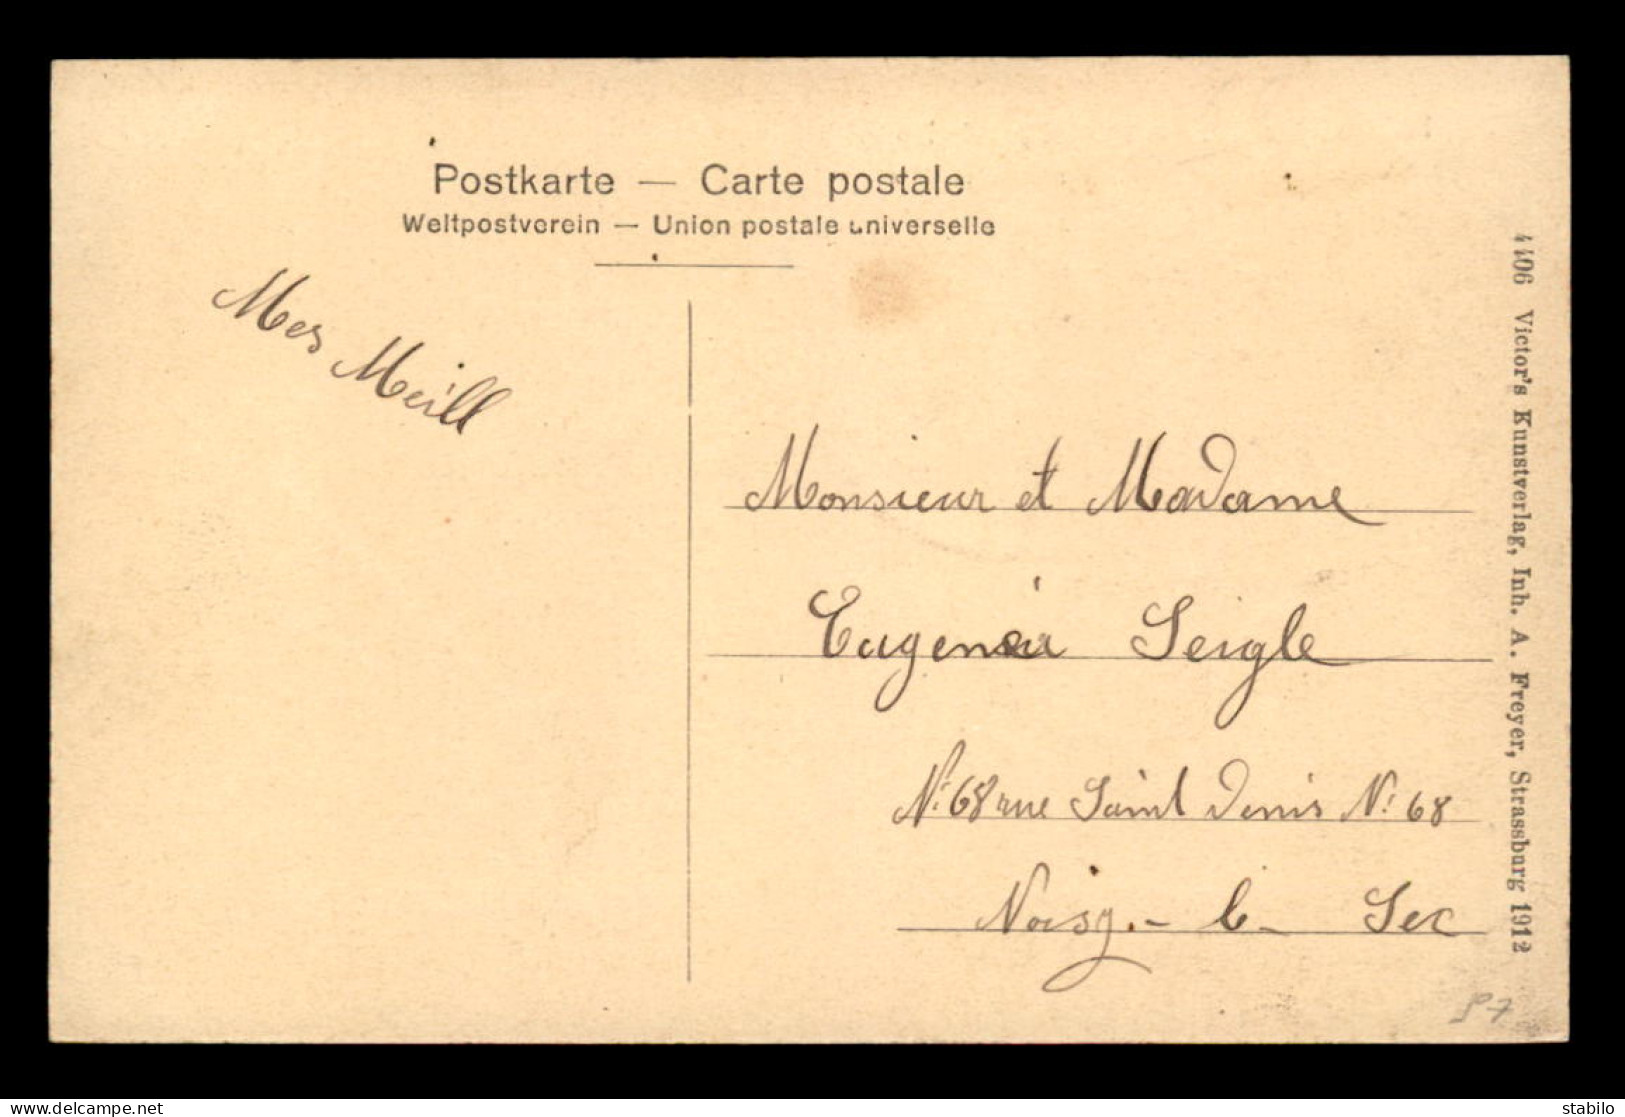 Postkarte — Carte postale
Weltpostverein — Union postale universelle
Mes Meill
Monsieur et Madame
Seigle
N: 68 rue Saint Denis N: 68
Noisy-le-Sec
4406 Victor's Kunstverlag, Inh. A. Freyer, Strassburg 1912
delcampe.net
stabilo